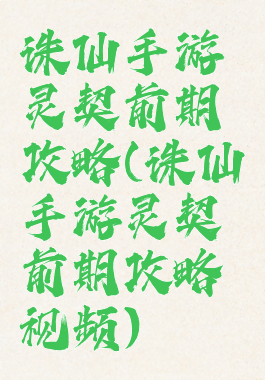 诛仙手游
灵契前期
攻略(诛仙
手游灵契
前期攻略
视频)